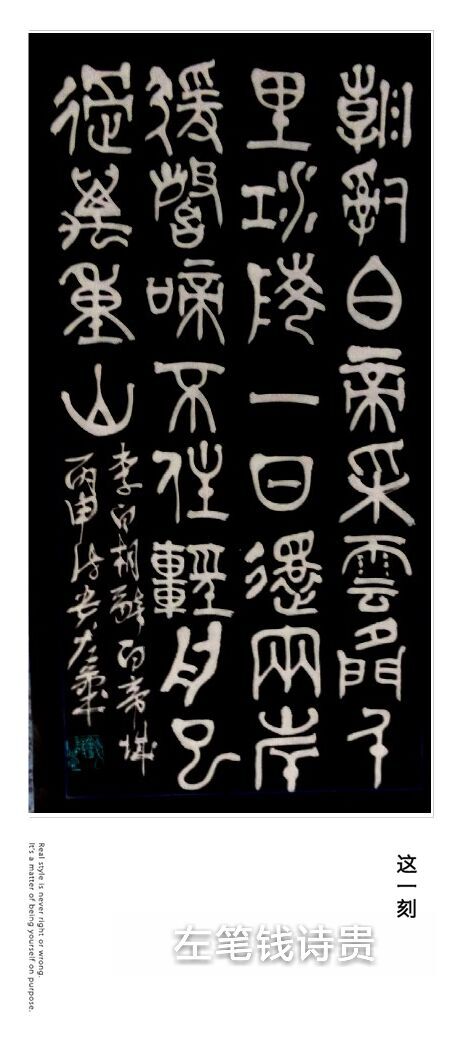 朝辭白帝采雲間千
里江陵一日還兩岸
猨聲啼不住輕舟已
過萬重山
李白朝辭白帝城
丙申詩貴左筆
这一刻
左笔钱诗贵
Real style is never right or wrong.
It's a matter of being yourself on purpose.